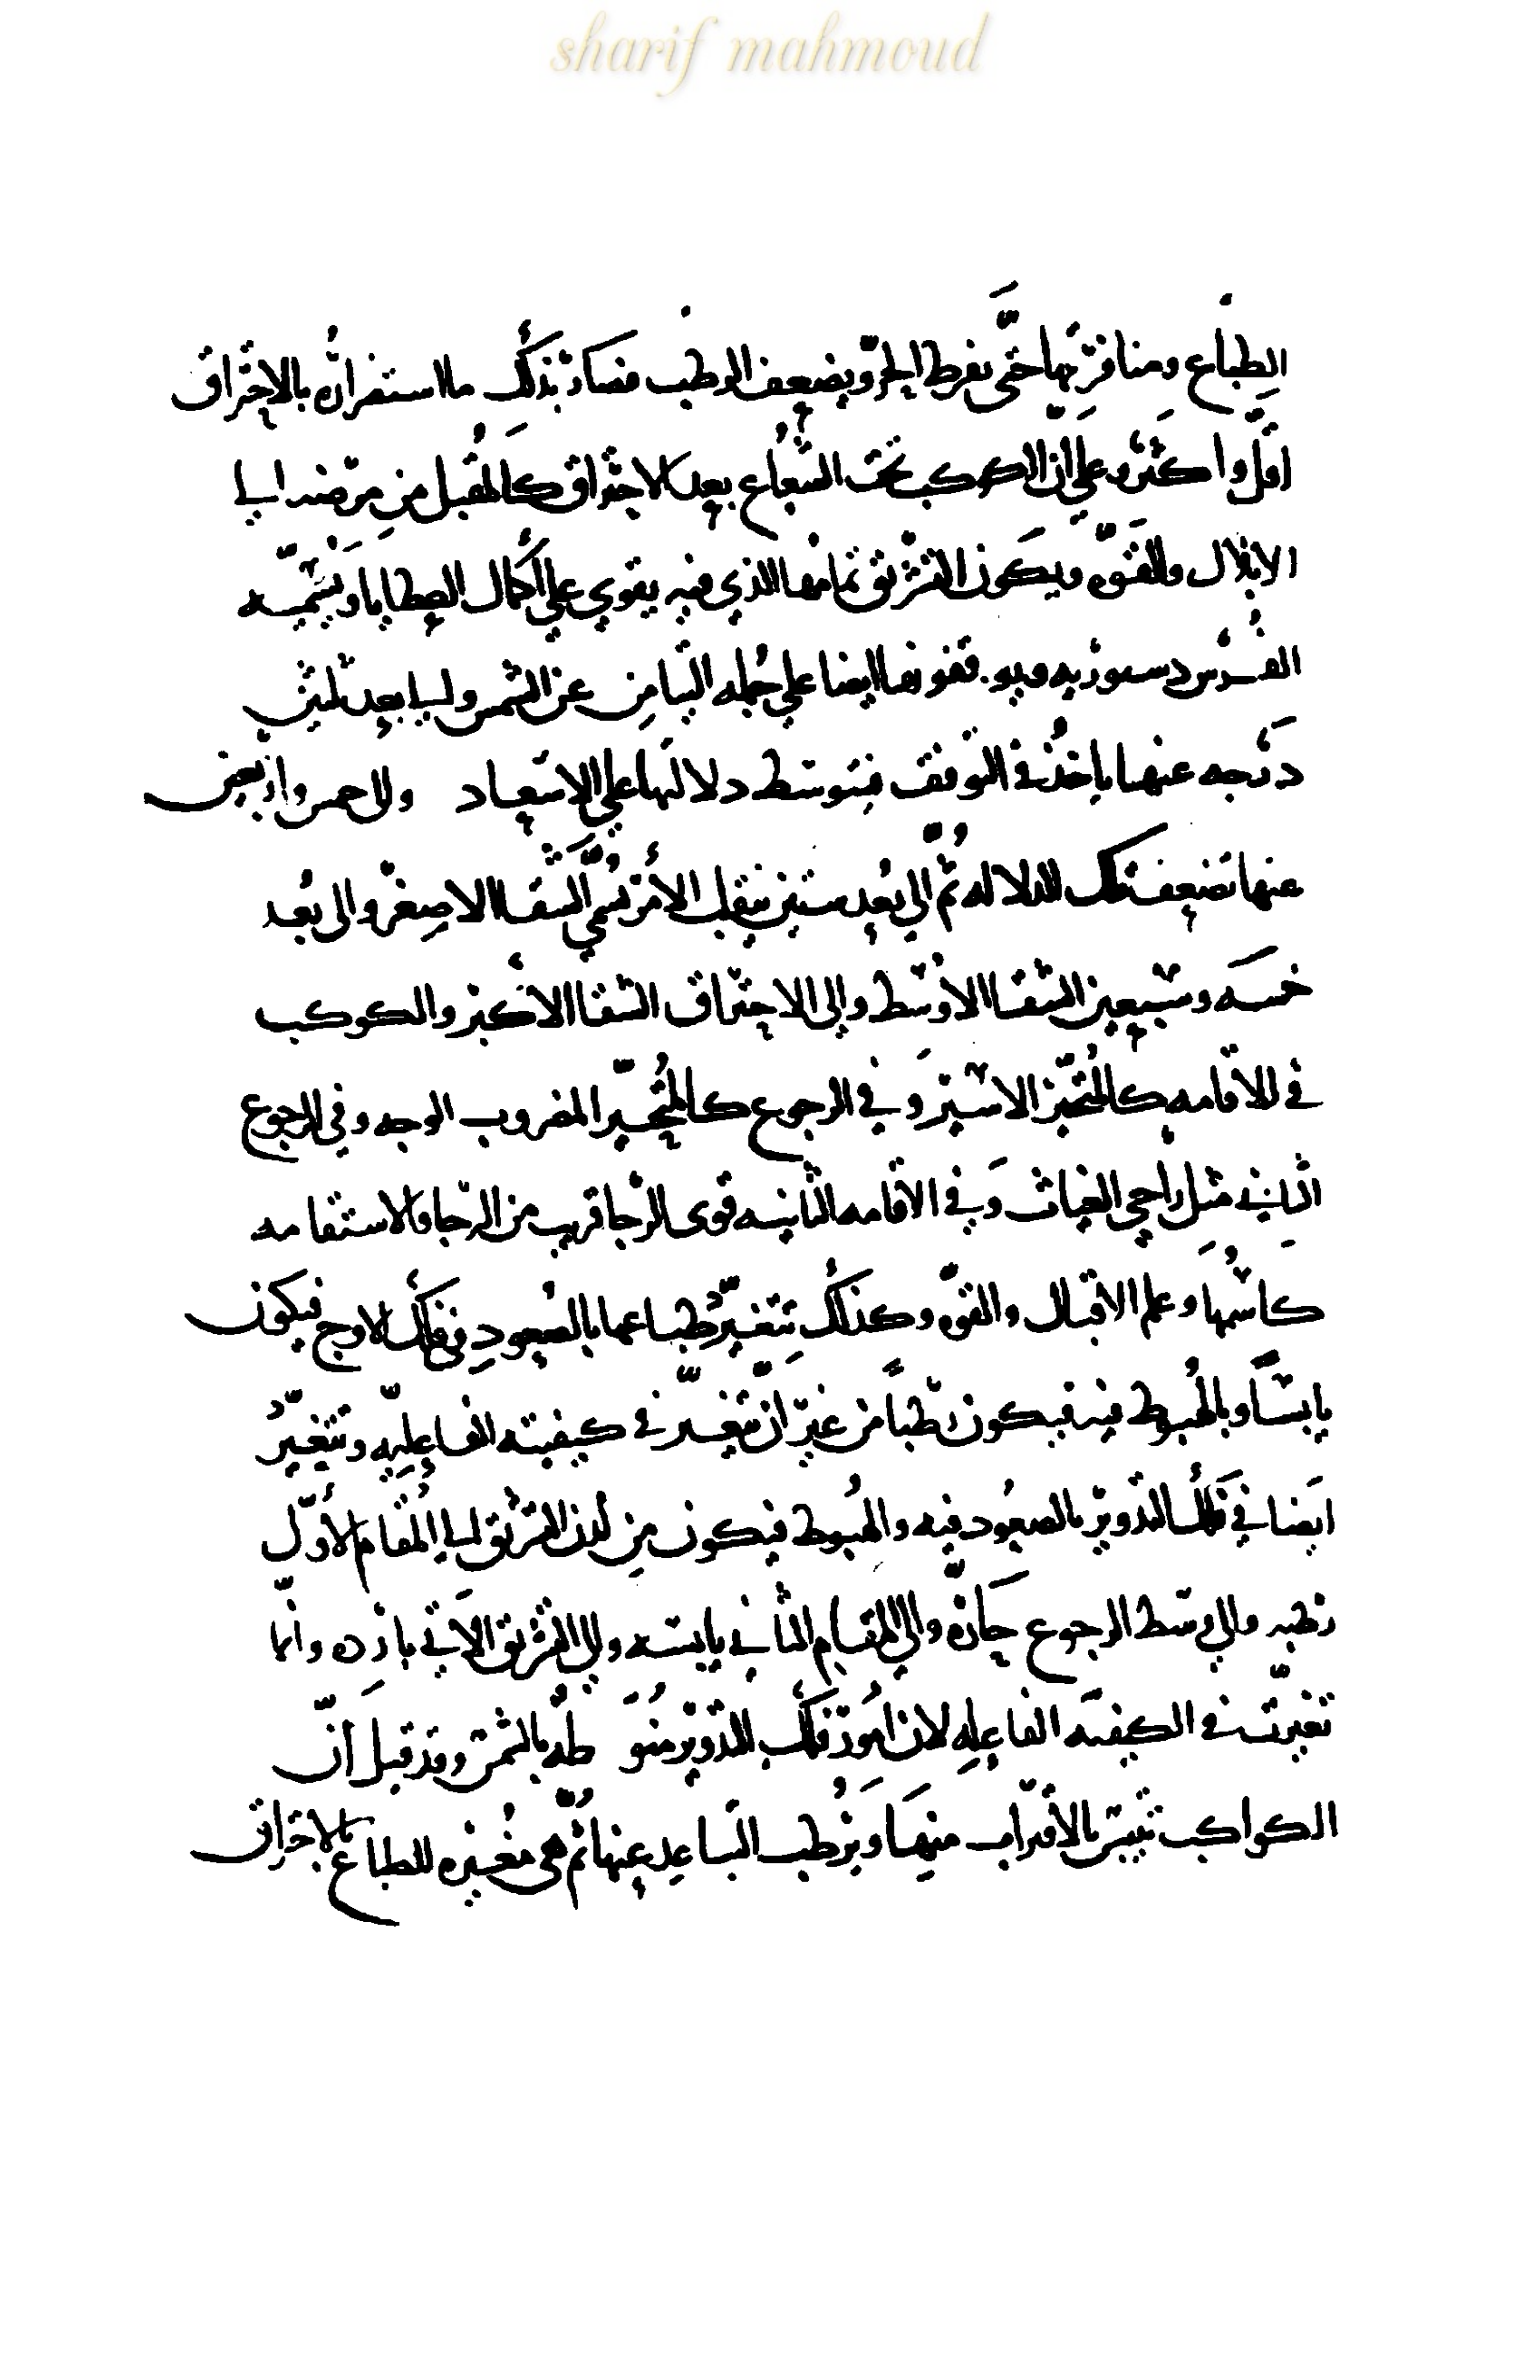 sharif mahmoud
الطباع ومنافرتها حتى يفرط الحر ويضعف الرطب فصارت بذلك ما استضرانه بالاحتراق
اقل واكثر وعلى ان الكوكب تحت الشعاع بعد الاحتراق كالمقبل من مرضه الى
الابلال والقوة ويكون التشريق تمامها الذي فيه يقوى على اكمال العطايا ويسميه
الفرس دستوريه فقوتها ايضا على جمله التيامن عن الشمس والى بعد ثلثين
درجه عنها ياخذ في التوقف فيتوسط دلالتها على الاسعاد والى خمس واربعين
عنها تضعف تلك الدلاله ثم الى بعد ستين ينقلب الامر تسمى الشقا الاصغر والى بعد
خمسه وسبعين الشقا الاوسط والى الاحتراق الشقا الاكبر والكوكب
في الاقامه كالمتحير الاسير وفي الرجوع كالمتحير المضروب الوجه وفي الرجوع
الثاني مثل راجي الغياث وفي الاقامه الثانيه قوى الرجا قريب من الرجا والاستقامه
كاسمها وعلم الاقبال والقوه وكذلك تتغير طباعها بالصعود في فلك الاوج فيكون
يابسا وبالهبوط فيه فيكون رطبا من غير ان يتغير في كيفيته الفاعليه وتتغير
ايضا في فلك التدوير بالصعود فيه والهبوط فيكون من لدن التشريق الى المقام الاول
رطبه والى وسط الرجوع حاره والى المقام الثاني يابسه والى التشريق الاتي بارده وانما
تغيرت في الكيفيه الفاعله لان امور فلك التدوير منوطه بالشمس وقد قيل ان
الكواكب تيبس بالاقتراب منها وترطب التباعد عنها ثم هي مغيره للطباع بالاحتراق